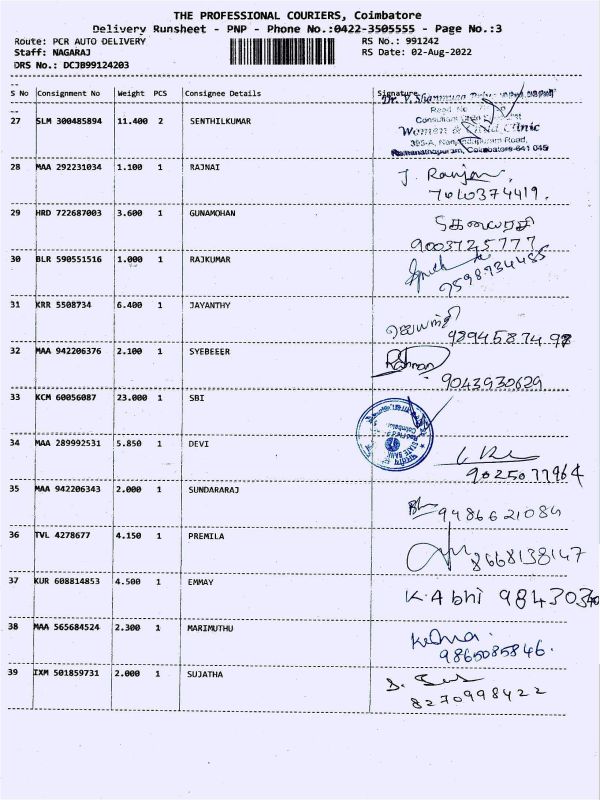 THE PROFESSIONAL COURIERS, Coimbatore
Delivery Runsheet - PNP - Phone No.:0422-3505555 - Page No.:3
Route: PCR AUTO DELIVERY RS No.: 991242
Staff: NAGARAJ RS Date: 02-Aug-2022
DRS No.: DCJB99124203
S No Consignment No Weight PCS Consignee Details Signature
Dr. V. Shanmuga Priya
Women & Child Clinic
395-A, Nanjundapuram Road,
Ramanathapuram, Coimbatore-641 045
27 SLM 300485894 11.400 2 SENTHILKUMAR
28 MAA 292231034 1.100 1 RAJNAI J. Ranjani
7010374419.
29 HRD 722687003 3.600 1 GUNAMOHAN
9003725777
30 BLR 590551516 1.000 1 RAJKUMAR
9598934455
31 KRR 5508734 6.400 1 JAYANTHY ஜெயந்தி
9894587498
32 MAA 942206376 2.100 1 SYEBEEER Rahman
9043930629
33 KCM 60056087 23.000 1 SBI
STATE BANK
34 MAA 289992531 5.850 1 DEVI
9025077964
35 MAA 942206343 2.000 1 SUNDARARAJ
9486621084
36 TVL 4278677 4.150 1 PREMILA
8668138147
37 KUR 608814853 4.500 1 EMMAY K.Abhi 9843034
38 MAA 565684524 2.300 1 MARIMUTHU
9865085846.
39 IXM 501859731 2.000 1 SUJATHA
8270998422